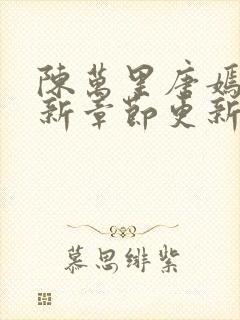 陳萬里唐嫣
新章節更新
慕思緋紫